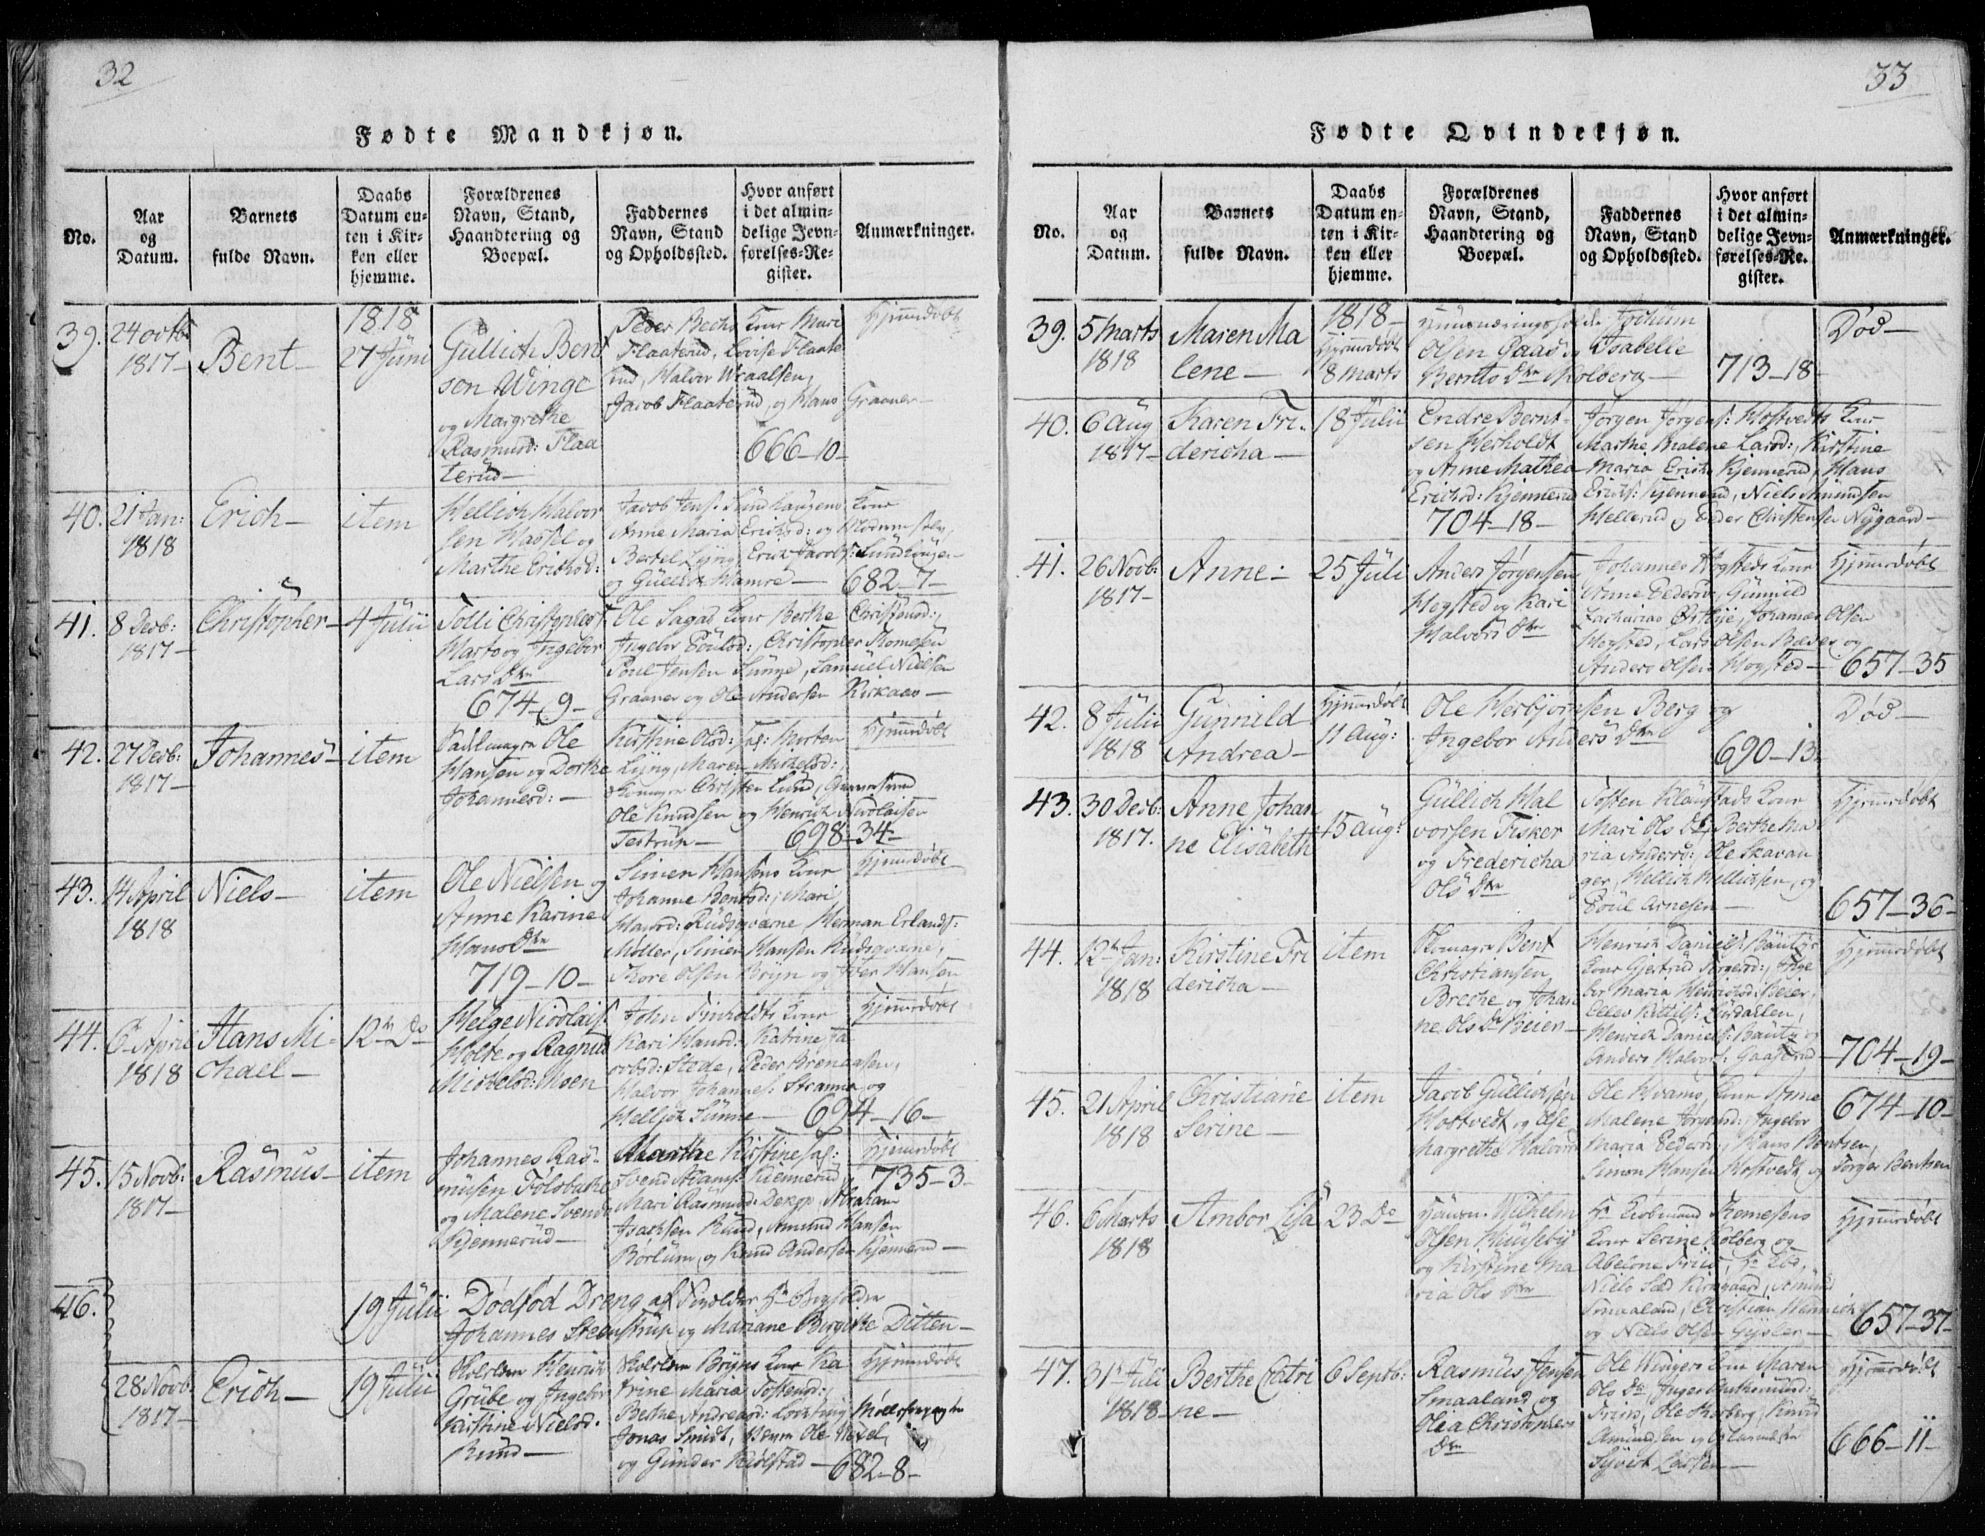 32
Fødte Mandkjøn.
No.
Aar
og
Datum.
Barnets
fulde Navn.
Daabs
Datum en-
ten i Kir-
ken eller
hjemme.
Forældrenes
Navn, Stand,
Haandtering og
Boepæl.
Faddernes
Navn, Stand
og Opholdssted.
Hvor anført
i det almin-
delige Jevn-
førelses-Re-
gister.
Anmærkninger.
39. 24 octb:
1817 –
Bent –
1818
27 Juni
Gullich Bent
sen Winge
og Margrethe
Rasmusd: Flaa
terud –
Peder Bechs Kone Mari
Flaaterud, Lovise Flaate
rud, Halvor Wraalsen,
Jacob Flaaterud, og Hans Graaner –
666–10–
Hjemmedøbt
40. 21 Jan:
1818
Erich –
item
Hellich Halvor
sen Hassel og
Marthe Erichsd:
Jacob Jens: Kone
Anne Maria Erichsd: og
Bertel Lyng, Erich Jacobs:
og Gullich Hamre –
682–7–
41. 8 Decb:
1817 –
Christopher –
4 Julii
Tolli Christophers
og Ingebor
Lars Dtr
674–9–
Ole Sagas Kone Berthe Christensd:,
Ingebor Poulsd:, Christopher Thomesen
Poul Jensen Lunge, Samuel Nielsen
Graaner og Ole Andersen Kirkaas –
42. 27 Decb:
1817 –
Johannes –
item
Ole
Hansen og Dorthe
Johannesd: –
Kirstine Olsd: Morten
Lyng, Maren Michelsd:,
Christen Lund,
Ole Knudsen og Henrich Nicolaisen
Testrup –
698–34–
Hjemmedøbt
43. 14 April
1818
Niels –
item
Ole Nielsen og
Anne Karine
Hans Dtr
719–10–
Simen Hansens Kone
Johanne Bentsd:, Mari
Hansd: Rudsqværne Herman Erlands:
Møller, Simen Hansen Rudsqværne,
Thore Olsen Bryn og Peter Hansen
Hjemmedøbt
44. 6te April
1818
Hans Mi-
chael –
12te Do
Helge Nicolais:
Holte og Ragnild
Michelsd: Moen
John Kone
Kari Hansd: Katrine Ja
cobsd: Stede, Peder
Halvor Johannes: Stramna og
Hellich Sunne –
694–16–
Hjemmedøbt
45. 15 Novb:
1817 –
Rasmus –
item
Johannes Ras-
musen
og Malene Svends
Kjennerud –
Marthe Kirstine
Svend Adams: Kjennerud,
Mari Rasmusd: Abraham
Isachsen Ruud, Amund Hansen
Børlum, og Knud Andersen Kjennerud –
735–3–
Hjemmedøbt
46.
19 Julii
Dødfød Dreng af
Johannes Steenstrup og Mariane Birgithe Ditten –
28 Novb:
1817 –
Erich –
19 Julii
Henrich
Grube og Ingebor
Kirstine Nielsd:
Ruud –
Bryns Kone Ka
trine Maria
Bethe Andreasd:
Jonas Smidt, Ole
og Gunder Kiølstad –
682–8–
Hjemmedøbt
33
Fødte Qvindekjøn.
No.
Aar
og
Datum.
Barnets
fulde Navn.
Daabs
Datum en-
ten i Kir-
ken eller
hjemme.
Forældrenes
Navn, Stand,
Haandtering og
Boepæl.
Faddernes
Navn, Stand
og Opholdssted.
Hvor anført
i det almin-
delige Jevn-
førelses-Re-
gister.
Anmærkninger.
39. 5 Marts
1818
Maren Ma
lene –
1818 –
Hjemmedøbt
8 Marts
Jochum
Olsen Isabelle
Bernts Dtr Molberg –
713–18–
Død –
40. 6 Aug
1817 –
Karen Fri-
dericha –
18 Julii
Endre Bernt-
sen Herholdt
og Anne Mathea
Erichsd: Kjennerud
704–18–
Jørgen Jørgens: Hostvedts Kone
Marthe Malene Larsd:, Kirstine
Maria Erichs Kjennerud, Hans
Erichs: Kjennerud, Niels Amundsen
Hellerud og Peder Christensen Nygaard –
41. 26 Novb:
1817 –
Anne –
25 Juli
Anders Jørgensen
Hogsted og Kari
Halvors Dtr
Johannes Hogsteds Kone
Anne Pedersd, Gunnild
Zacharias Johannes Olsen
Hogsted, Lars Olsen og
Anders Olsen Hogsted –
Hjemmedøbt
657–35
42. 8 Julii
1818
Gunnild
Andrea –
Hjemmedøbt
11 Aug:
Ole Herbjornsen Berg og
Ingebor Anders Dtr
690–13–
Død –
43. 30 Decb:
1817.
Anne Johan
ne Elisabeth
15 Aug:
Gullich Hal
vorsen Fisker
og Fredericha
Ols Dtr
Tosten Klaustads Kone
Mari Ols Dtr, Berthe Ma
ria Andersd:, Ole Skavan
ger, Hellich Hellichsen, og
Poul Arnesen –
Hjemmedøbt
657–36–
44. 12te Jan:
1818
Kirstine Fri
dericha –
item
Bent
Christiansen
Breche og Johan
ne Ols Dtr Beier –
Henrich Daniels: Bautz
Kone Gjertrud Torgersd:, Inge
bor Maria Henrichsd: Beier,
Henrich Daniels: Bautz og
Anders Halvors: Gaasterud
Hjemmedøbt
704–19–
45. 21 April
1818
Christiane
Serine –
item
Jacob Gullichsen
Hostvedt og Else
Margrethe Halvors
Ole Hvams, Kone Anne
Malene Jorgensd:, Ingebor
Maria Pedersd:, Hans Bentsen,
Simon Hansen Hostvedt og Torger Bentsen
674–10–
46. 6 Marts
1818
Ambor Lisa
23 Do
Wilhelm
Olsen Huuseby
og Kirstine Ma
ria Ols Dtr
Thomesens
Kone Serine Kolberg og
Abelone
Niels
Smaaland, Christian Henrich
og Niels Olsen Gysler –
Hjemmedøbt
657–37–
47. 31te Juli
1818 –
Berthe Catri
ne –
6 Septb:
Rasmus Jensen
Smaaland og
Olia Christophers
Dtr
Ole Wingers Kone Maren
Ols Dtr, Inger
Friis, Ole Korberg, Knud
Amundsen og
Syvert Larsen –
Hjemmedøbt
666–11–